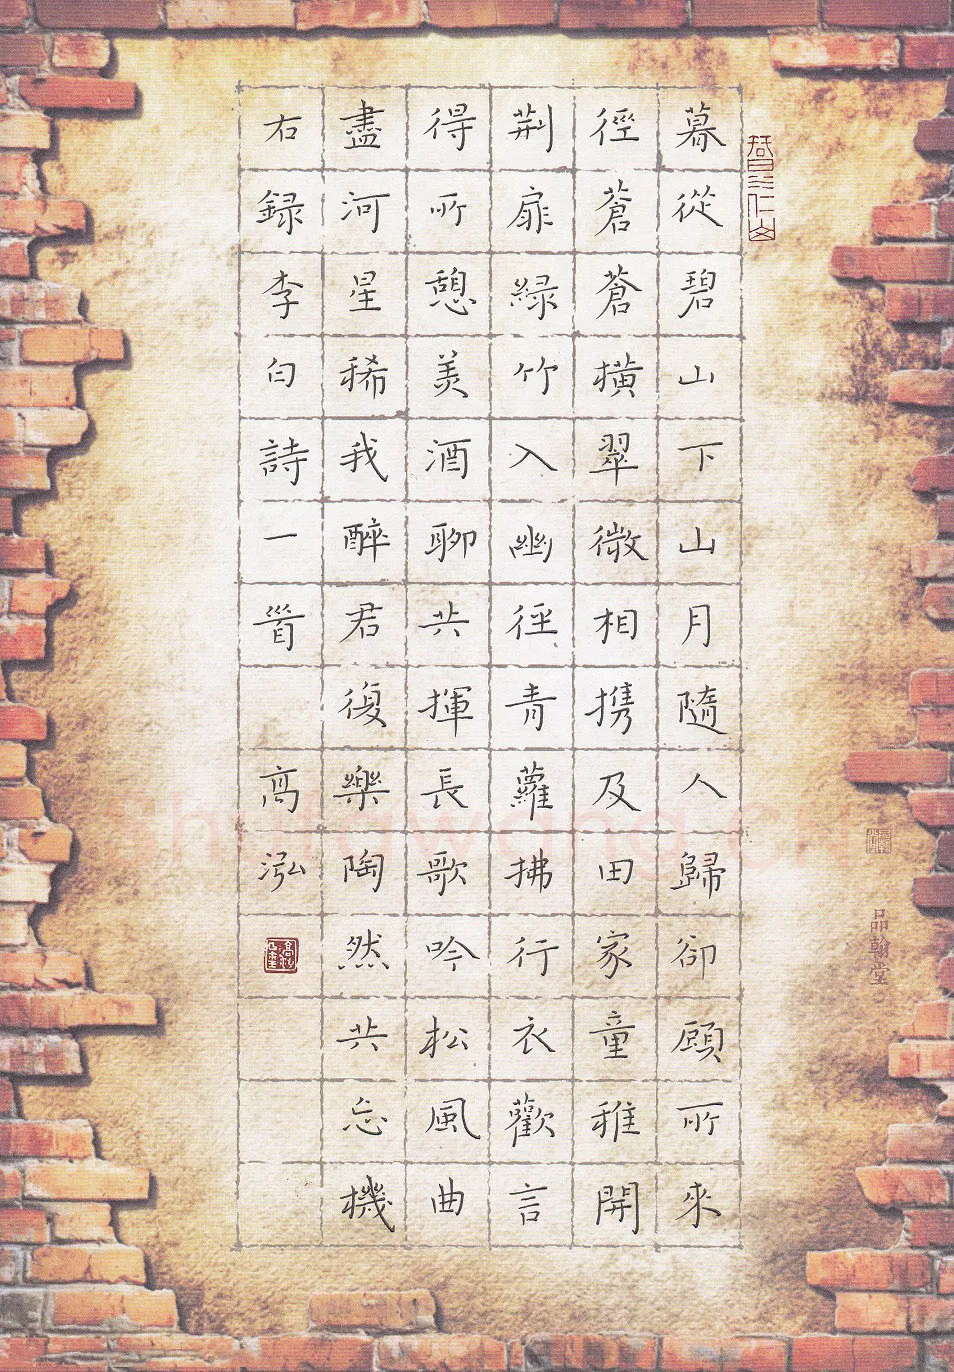 暮從碧山下山月隨人歸卻顧所來
徑蒼蒼橫翠微相携及田家童稚開
荆扉綠竹入幽徑青蘿拂行衣歡言
得所憩美酒聊共揮長歌吟松風曲
盡河星稀我醉君復樂陶然共忘機
右録李白詩一首 高泓
品翰堂